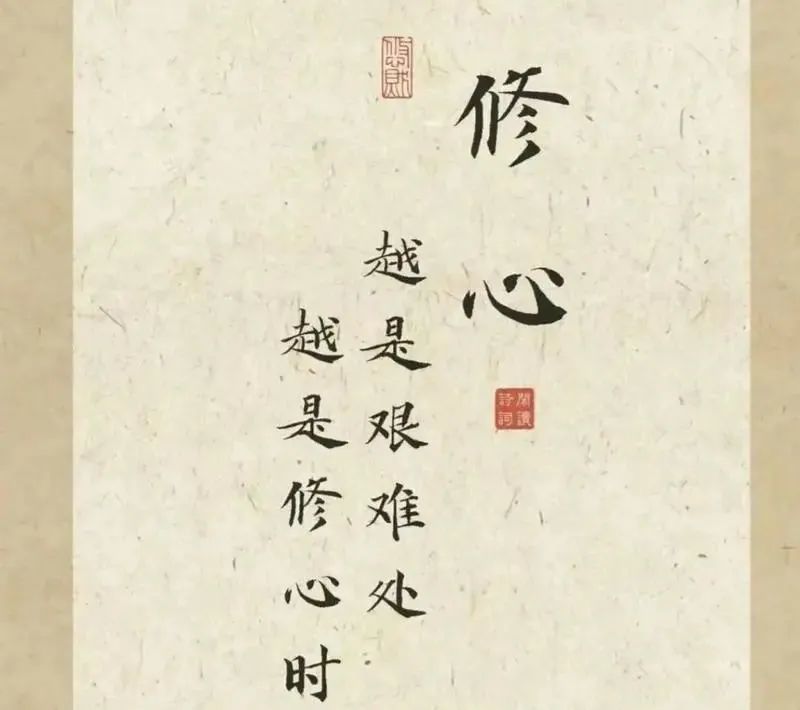 修心
閒讀詩詞
越是艰难处
越是修心时